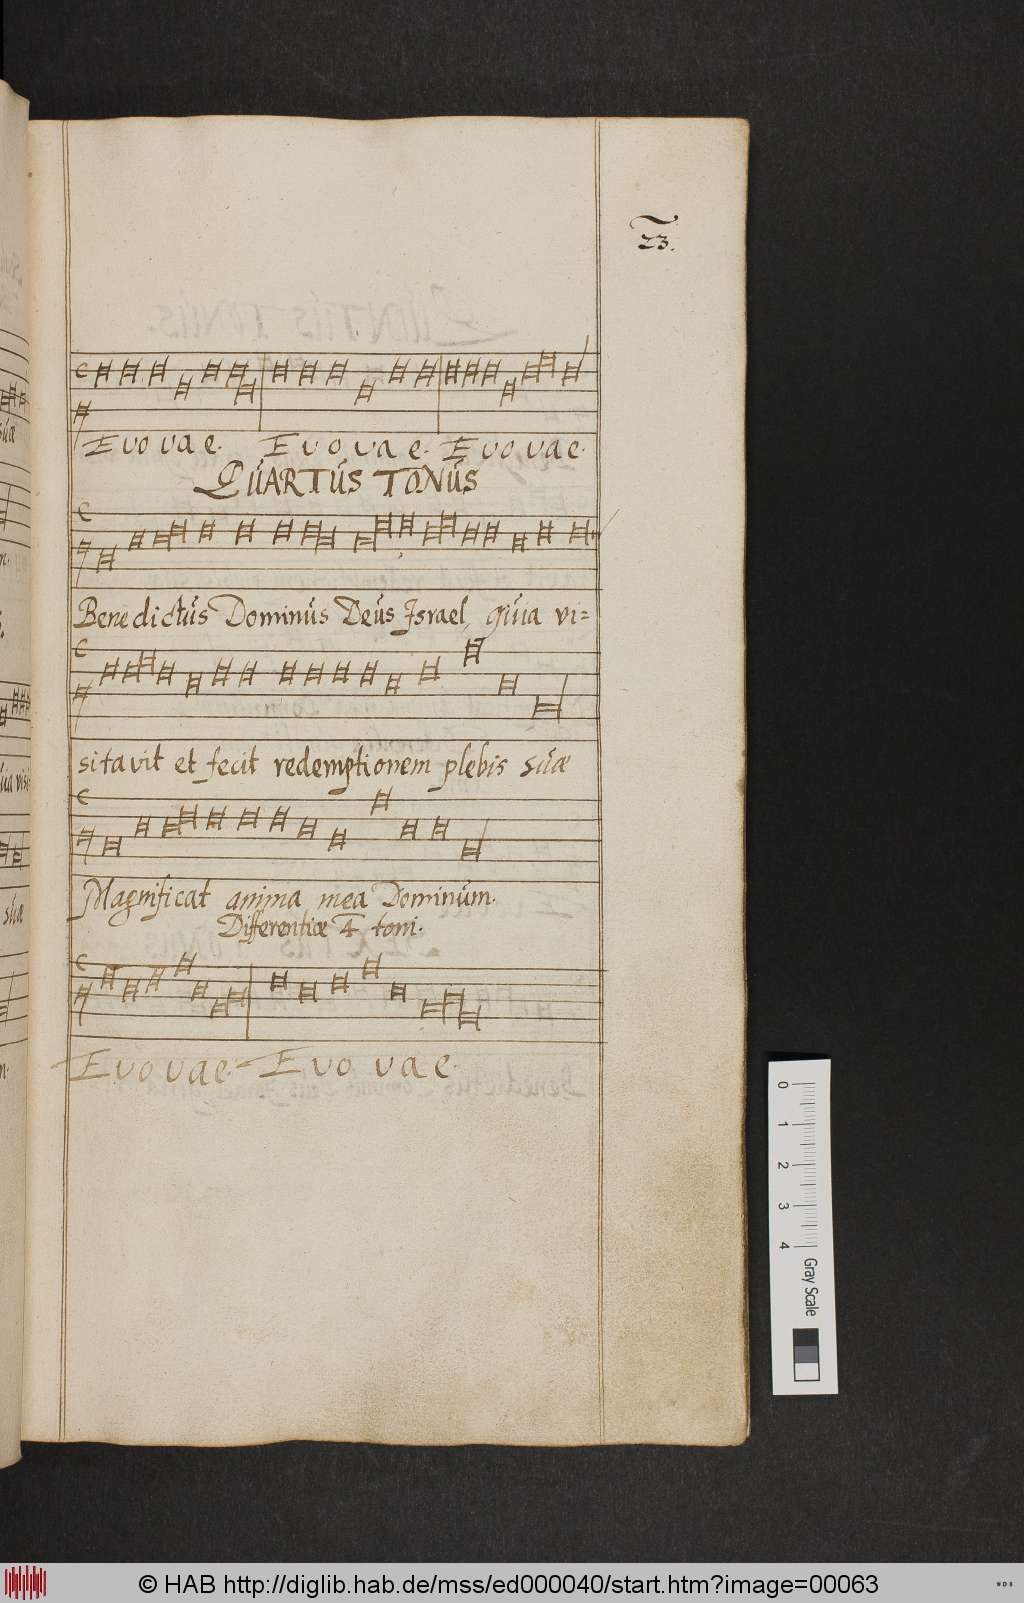 23.
Evovae. Evovae. Evovae.
QUARTUS TONUS
Benedictus Dominus Deus Israel, quia vi=
sitavit et fecit redemptionem plebis suæ
Magnificat anima mea Dominum.
Differentiæ 4 toni.
Evovae. Evovae.
0 1 2 3 4 Gray Scale
© HAB http://diglib.hab.de/mss/ed000040/start.htm?image=00063